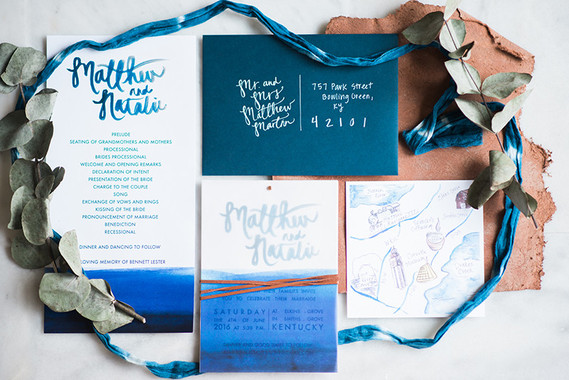 Matthew
and
Natalie
PRELUDE
SEATING OF GRANDMOTHERS AND MOTHERS
PROCESSIONAL
BRIDES PROCESSIONAL
WELCOME AND OPENING REMARKS
DECLARATION OF INTENT
PRESENTATION OF THE BRIDE
CHARGE TO THE COUPLE
SONG
EXCHANGE OF VOWS AND RINGS
KISSING OF THE BRIDE
PRONOUNCEMENT OF MARRIAGE
BENEDICTION
RECESSIONAL
DINNER AND DANCING TO FOLLOW
LOVING MEMORY OF BENNETT LESTER
Mr. and
Mrs
Matthew
Martin
757 Park Street
Bowling Green,
Ky
42101
Matthew
and
Natalie
FAMILIES INVITE
YOU TO CELEBRATE THEIR MARRIAGE
SATURDAY
THE 4TH OF JUNE
2016 AT 5:30 P.M.
IN SMITHS GROVE
KENTUCKY